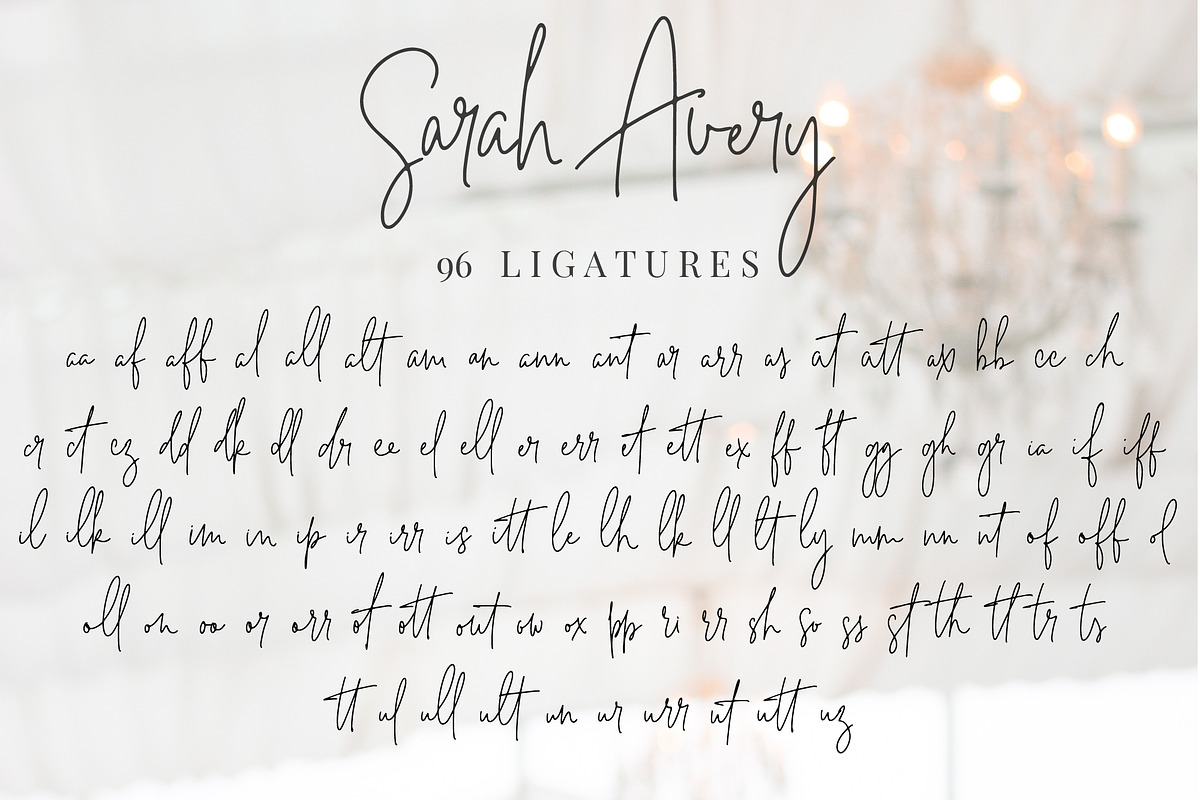 Sarah Avery
96 LIGATURES
aa af aff al all alt am an ann ant ar arr as at att ax bb cc ch
cr ct cz dd dk dl dr ee el ell er err et ett ex ff ft gg gh gr ia if iff
il ilk ill im in ip ir irr is itt le lh lk ll lt ly mm nn nt of off ol
oll on oo or orr ot ott out ow ox pp ri rr sh so ss st th tl tr ts
tt ul ull ult un ur urr ut utt uz